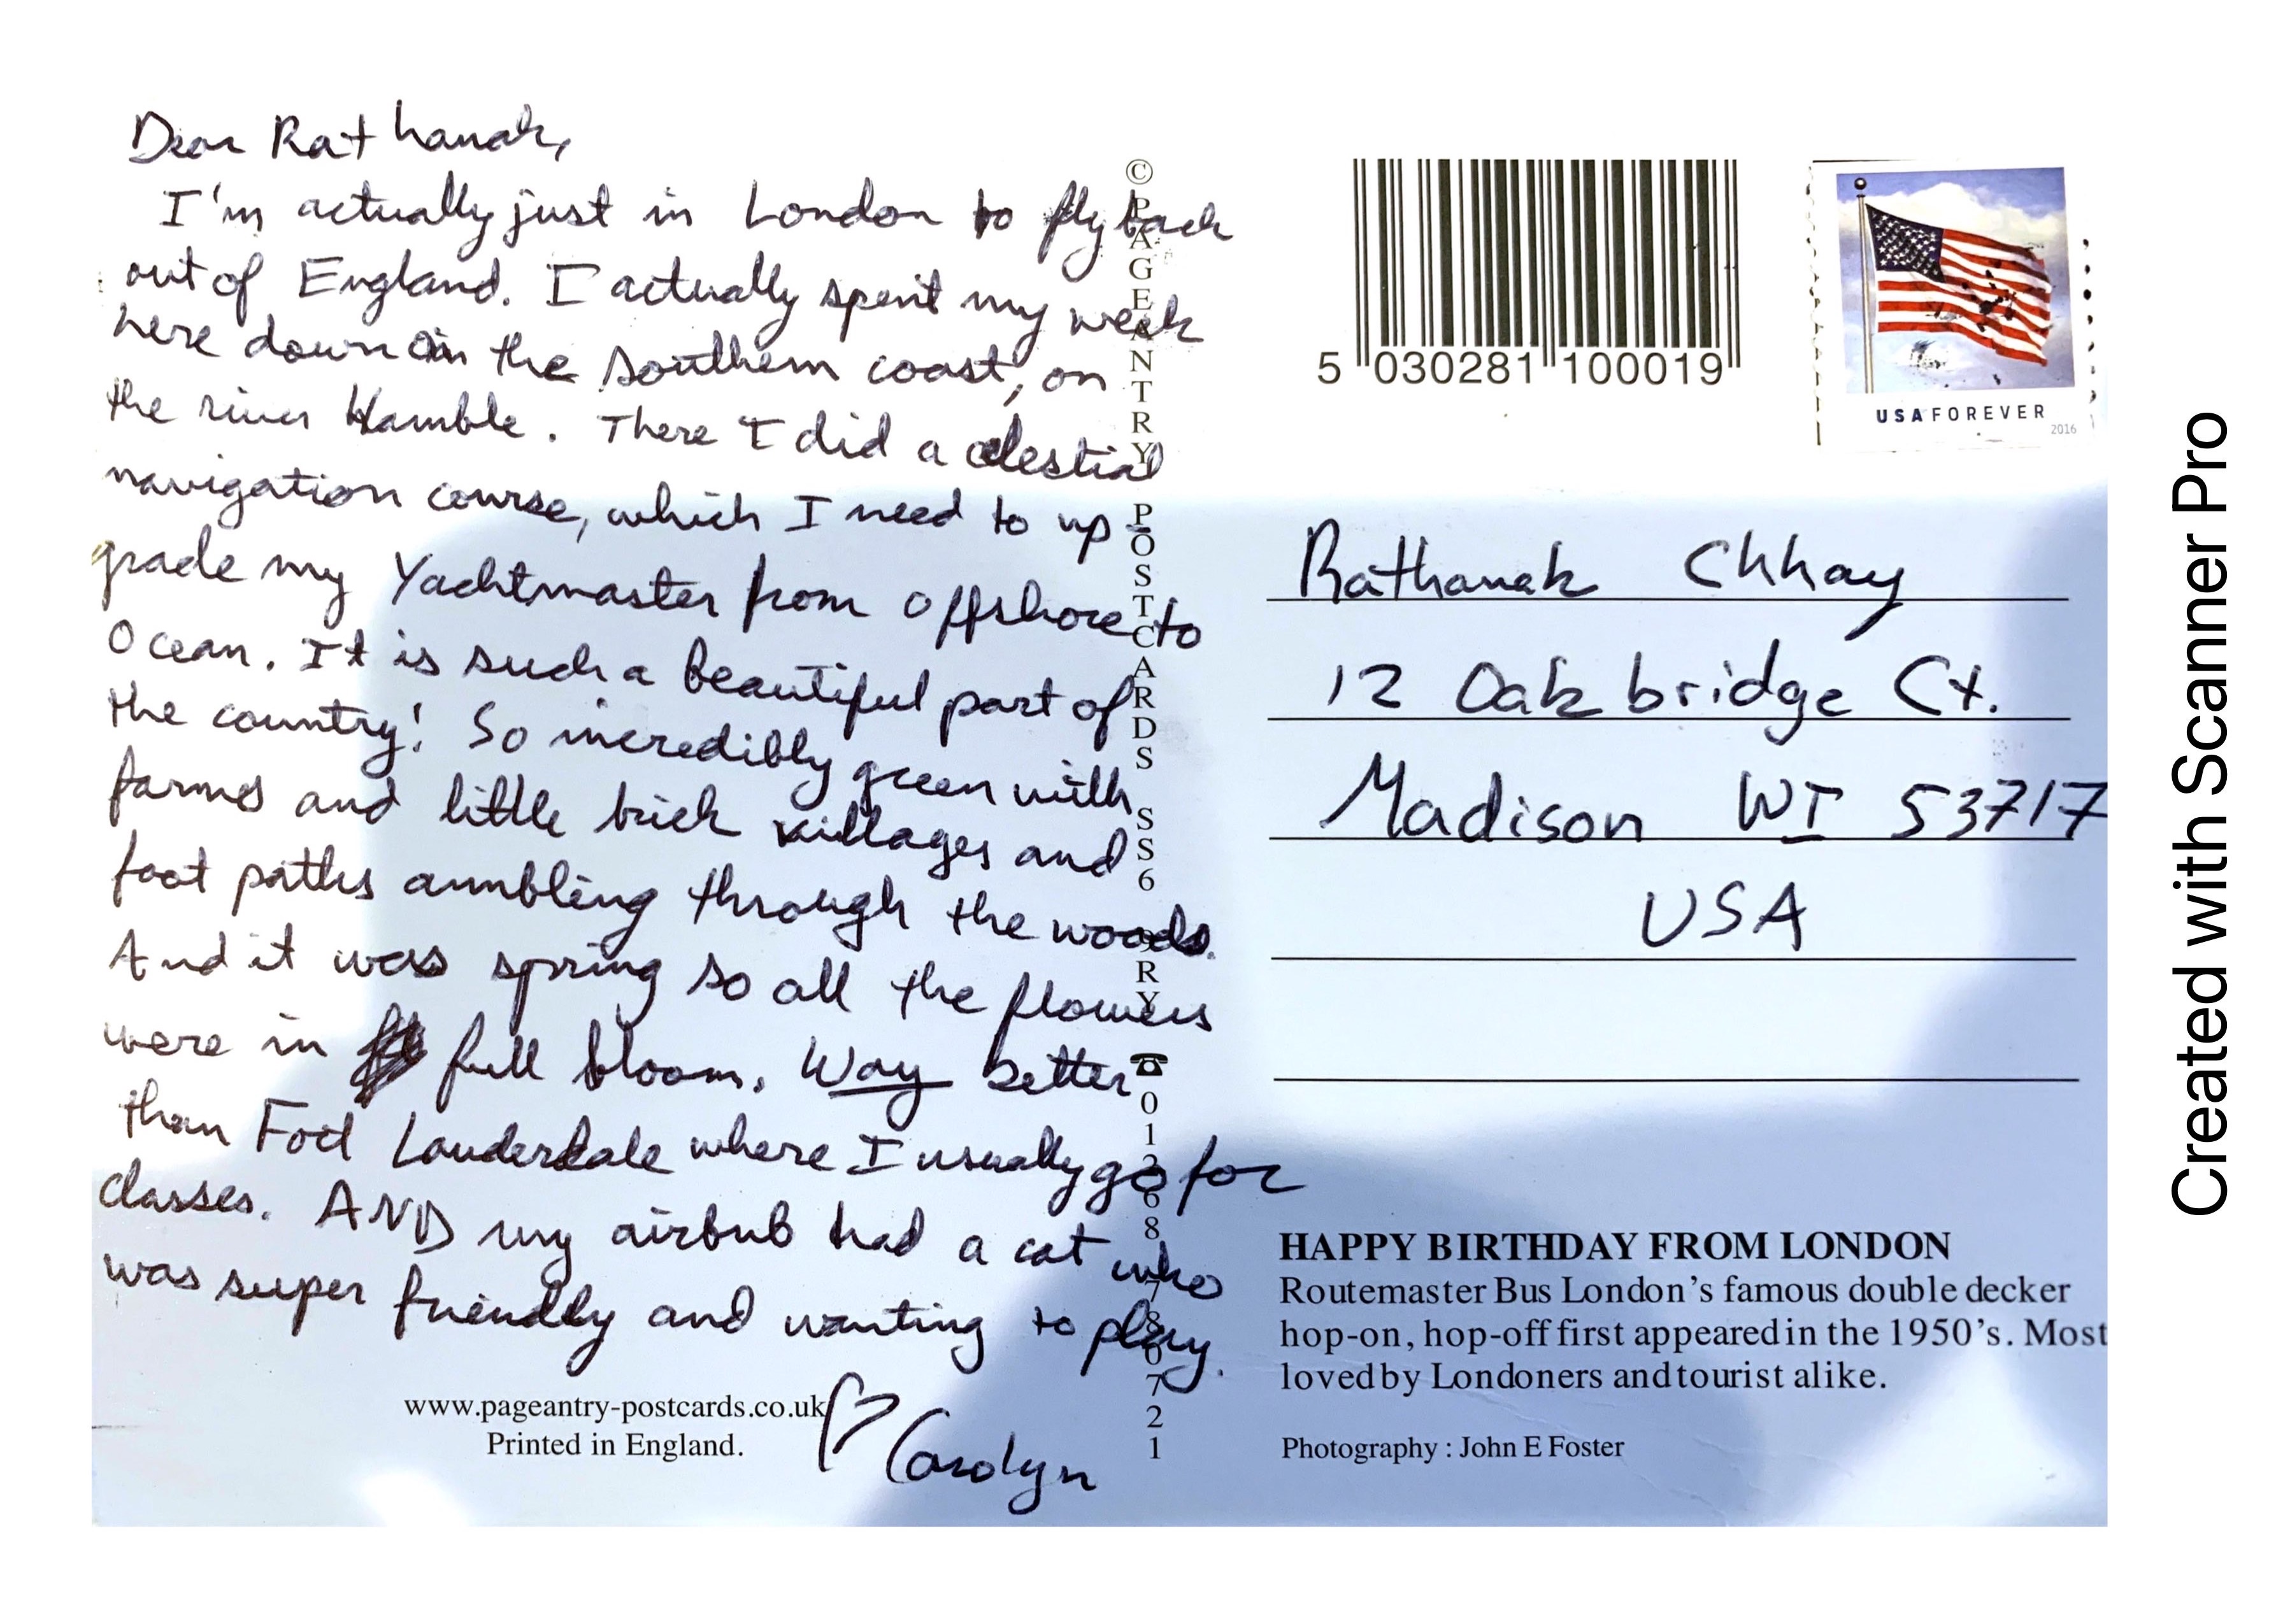 Dear Rathanak,
I'm actually just in London to fly back
out of England. I actually spent my week
here down in the southern coast, on
the river Hamble. There I did a celestial
navigation course, which I need to up-
grade my Yachtmaster from offshore to
Ocean. It is such a beautiful part of
the country! So incredibly green with
farms and little brick villages and
foot paths ambling through the woods.
And it was spring so all the flowers
were in full bloom. Way better
than Fort Lauderdale where I usually go for
classes. AND my airbnb had a cat who
was super friendly and wanting to play.
♡ Carolyn
www.pageantry-postcards.co.uk
Printed in England.
© PAGEANTRY POSTCARDS SS6 9RY ☎ 01268 780721
5 030281 100019
USA FOREVER
2016
Rathanak Chhay
12 Oakbridge Ct.
Madison WI 53717
USA
HAPPY BIRTHDAY FROM LONDON
Routemaster Bus London's famous double decker
hop-on, hop-off first appeared in the 1950's. Most
loved by Londoners and tourist alike.
Photography : John E Foster
Created with Scanner Pro